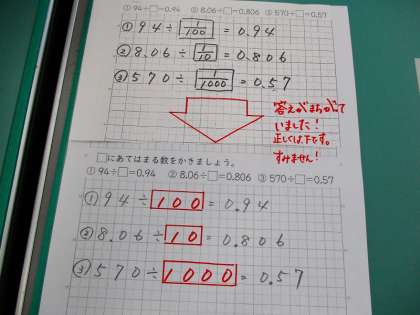 ① 94÷□=0.94 ② 8.06÷□=0.806 ③ 570÷□=0.57
① 94÷1/100=0.94
② 8.06÷1/10=0.806
③ 570÷1/1000=0.57
答えがまちがって
いました!
正しくは下です。
すみません!
□にあてはまる数をかきましょう。
① 94÷□=0.94 ② 8.06÷□=0.806 ③ 570÷□=0.57
① 94÷100=0.94
② 8.06÷10=0.806
③ 570÷1000=0.57